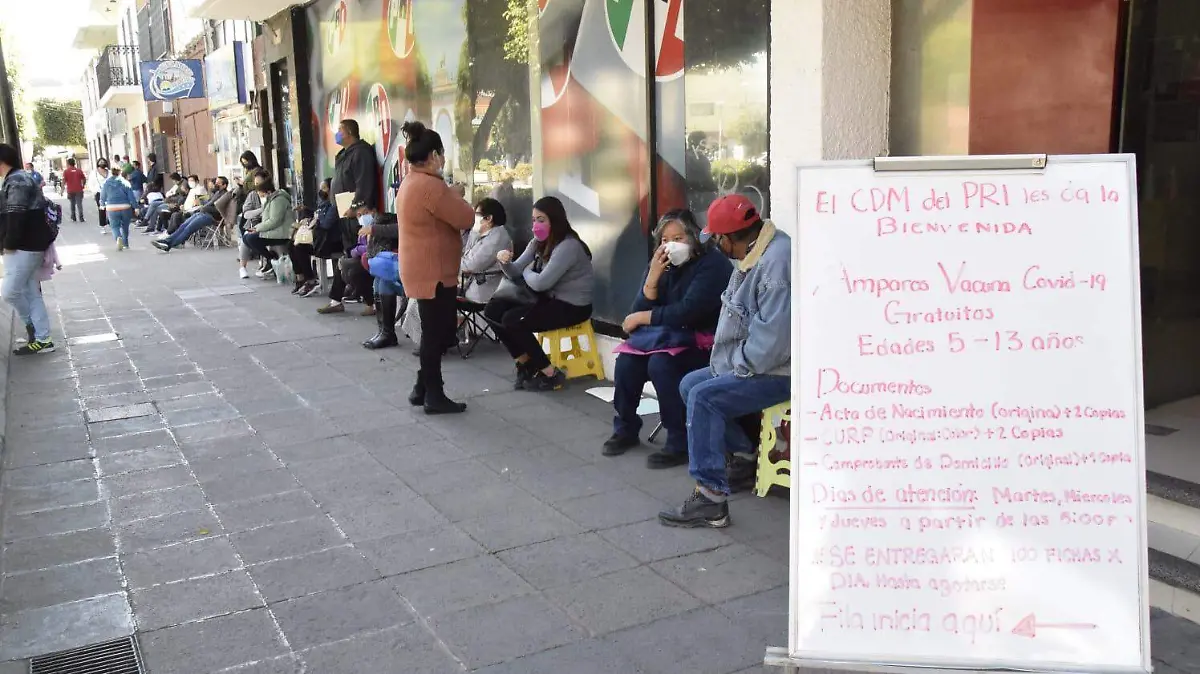 El CDM del PRI les da la
BIENVENIDA
Amparos Vacuna Covid-19
Gratuitos
Edades 5-13 años
Documentos
- Acta de Nacimiento (original) + 2 Copias
- CURP (Original Color) + 2 Copias
- Comprobante de Domicilio (original) + 1 Copia
Días de atención: Martes, Miercoles
y Jueves a partir de las
SE ENTREGARAN 100 FICHAS X
DIA. Hasta agotarse.
Fila inicia aquí